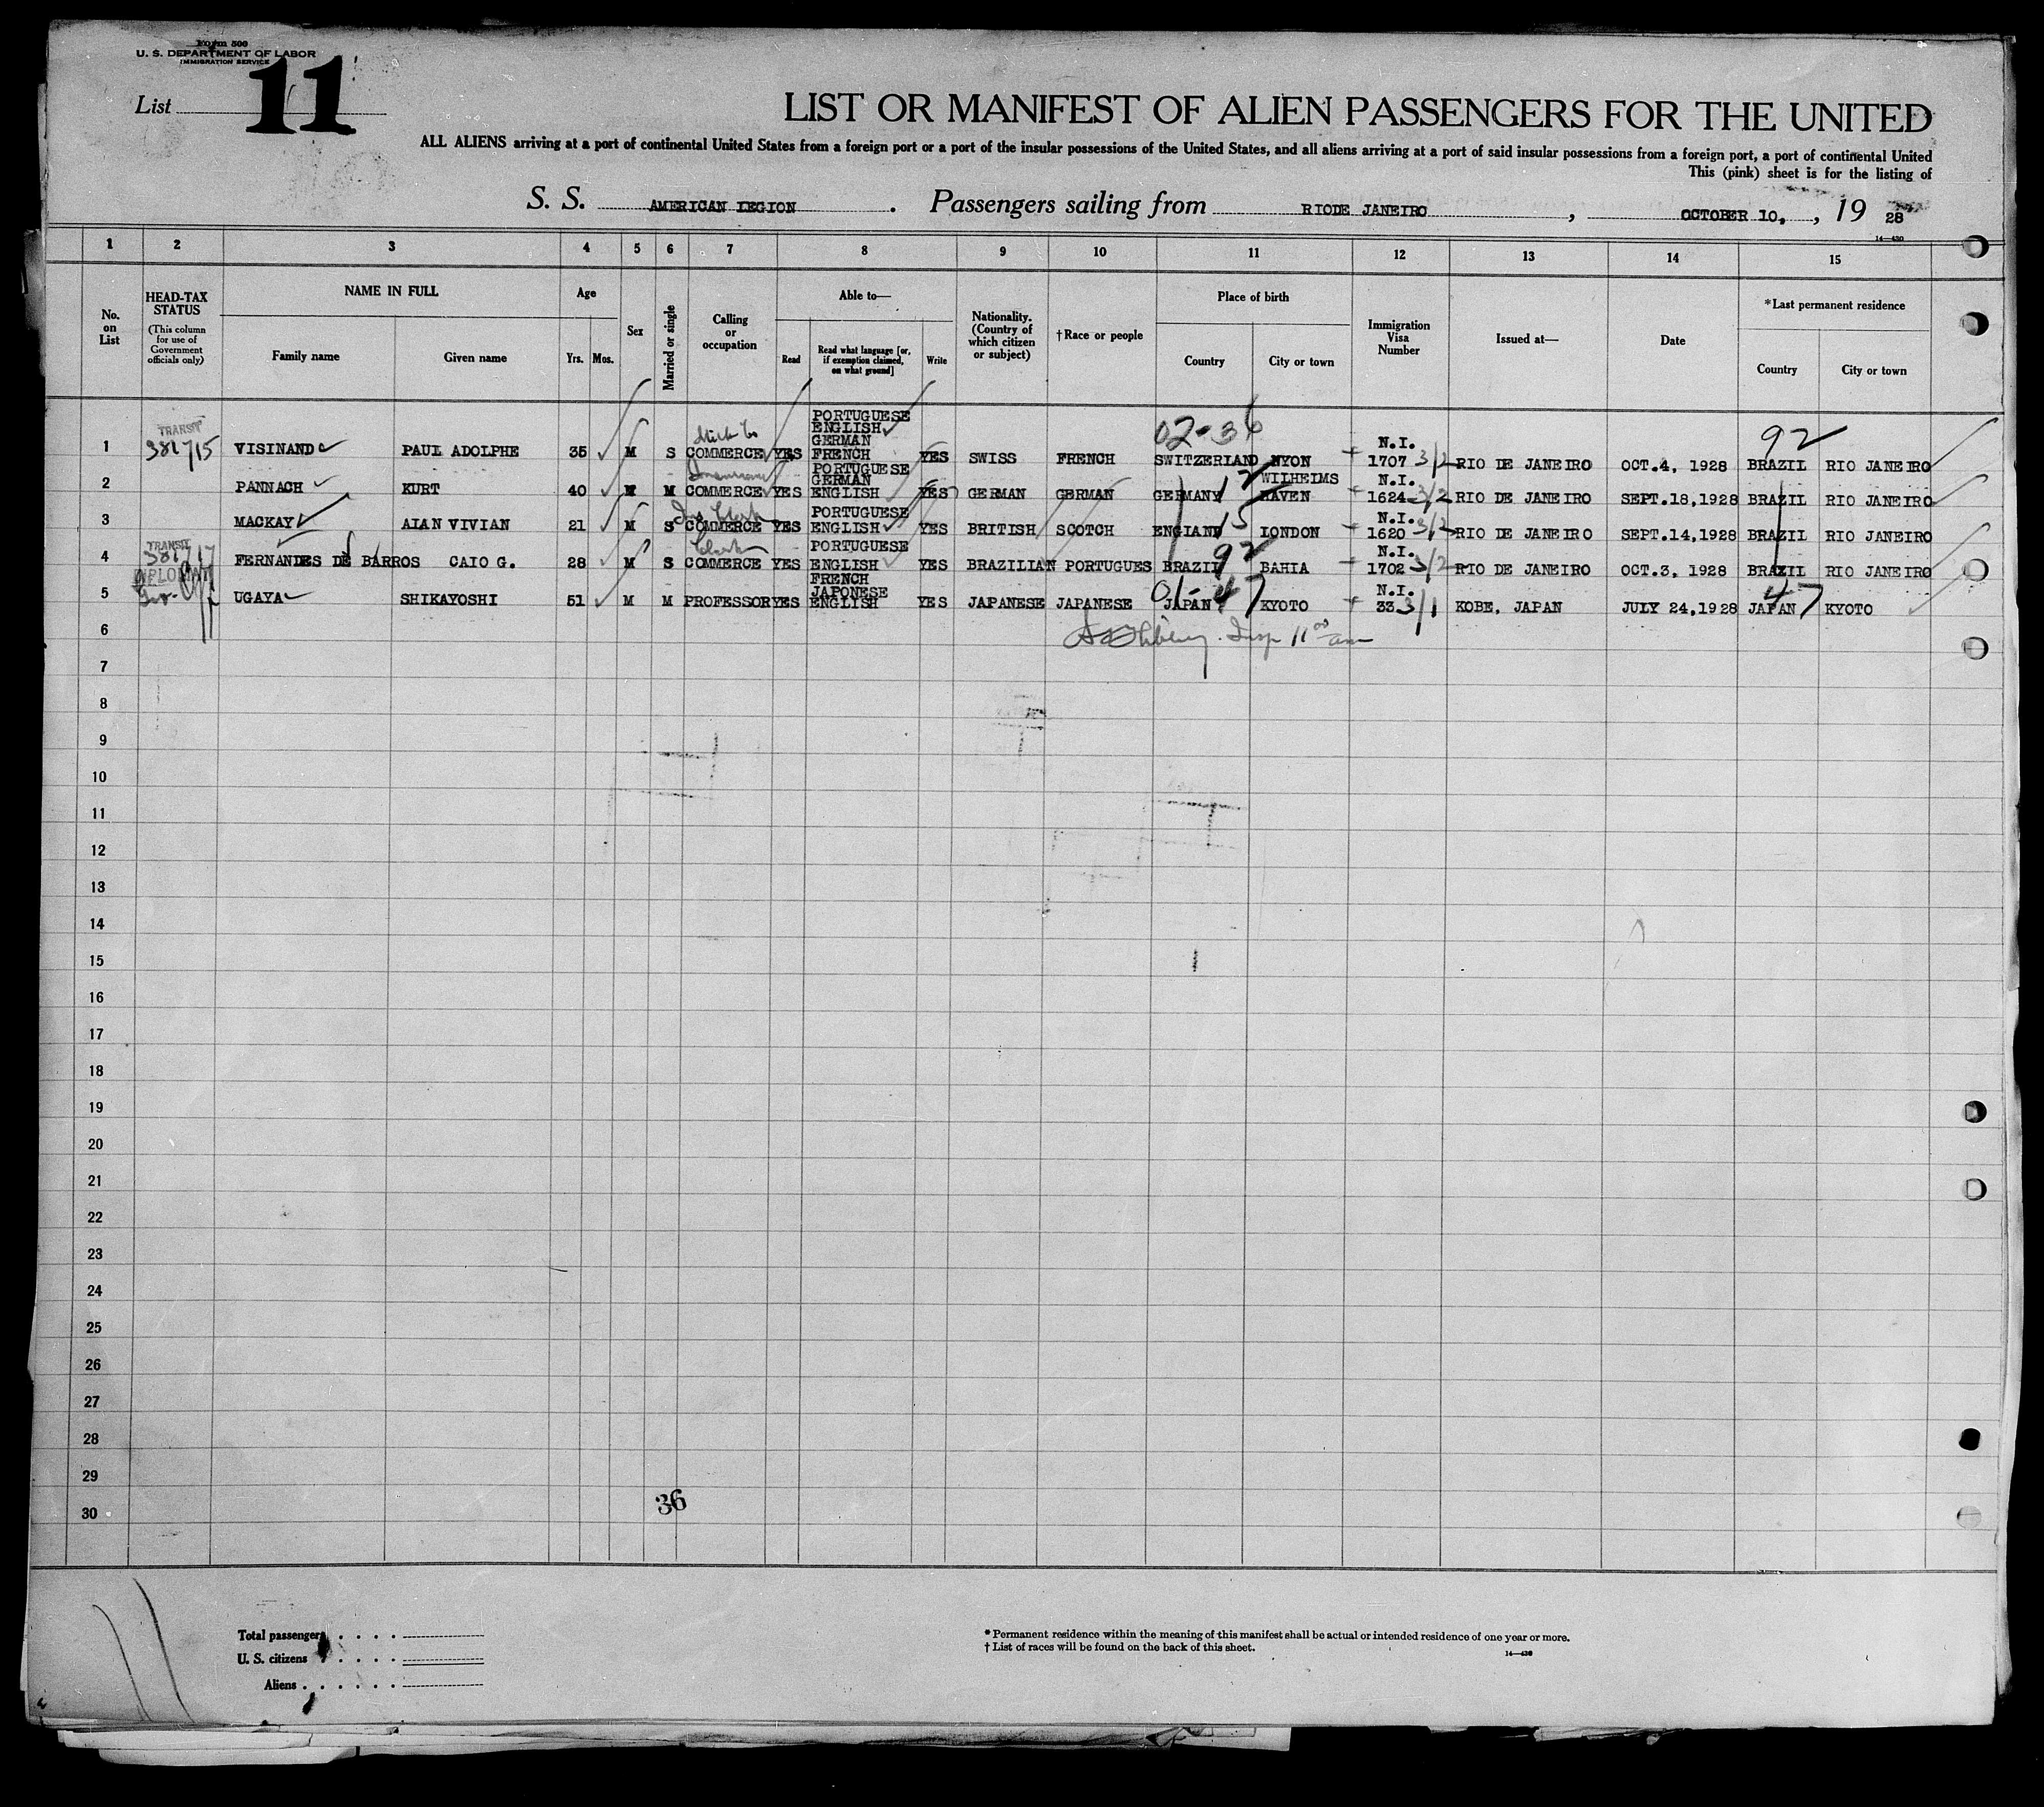 Form 500
U. S. DEPARTMENT OF LABOR
IMMIGRATION SERVICE
List 11
LIST OR MANIFEST OF ALIEN PASSENGERS FOR THE UNITED
ALL ALIENS arriving at a port of continental United States from a foreign port or a port of the insular possessions of the United States, and all aliens arriving at a port of said insular possessions from a foreign port, a port of continental United
This (pink) sheet is for the listing of
S. S. AMERICAN LEGION. Passengers sailing from RIODE JANEIRO, OCTOBER 10, , 19 28
14—430
1 2 3 4 5 6 7 8 9 10 11 12 13 14 15
No. on List
HEAD-TAX STATUS
(This column for use of Government officials only)
NAME IN FULL
Family name Given name
Age
Yrs. Mos.
Sex
Married or single
Calling or occupation
Able to—
Read
Read what language [or, if exemption claimed, on what ground]
Write
Nationality. (Country of which citizen or subject)
†Race or people
Place of birth
Country City or town
Immigration Visa Number
Issued at—
Date
*Last permanent residence
Country City or town
TRANSIT
02-36
92
1 381715 VISINAND PAUL ADOLPHE 35 M S COMMERCE YES PORTUGUESE ENGLISH GERMAN FRENCH YES SWISS FRENCH SWITZERLAND NYON N.I. 1707 3/2 RIO DE JANEIRO OCT.4, 1928 BRAZIL RIO JANEIRO
2 PANNACH KURT 40 M M Insurance COMMERCE YES PORTUGUESE GERMAN ENGLISH YES GERMAN GERMAN GERMANY 12 WILHELMS HAVEN N.I. 1624 3/2 RIO DE JANEIRO SEPT.18,1928 BRAZIL RIO JANEIRO
3 MACKAY ALAN VIVIAN 21 M S Ins Clerk COMMERCE YES PORTUGUESE ENGLISH YES BRITISH SCOTCH ENGLAND 15 LONDON N.I. 1620 3/2 RIO DE JANEIRO SEPT.14,1928 BRAZIL RIO JANEIRO
TRANSIT
4 381717 FERNANDES DE BARROS CAIO G. 28 M S Clerk COMMERCE YES PORTUGUESE ENGLISH FRENCH YES BRAZILIAN PORTUGUES BRAZIL 92 BAHIA N.I. 1702 3/2 RIO DE JANEIRO OCT.3, 1928 BRAZIL RIO JANEIRO
DIPLOMAT
5 UGAYA SHIKAYOSHI 51 M M PROFESSOR YES JAPONESE ENGLISH YES JAPANESE JAPANESE 01-47 JAPAN KYOTO N.I. 33 3/1 KOBE, JAPAN JULY 24,1928 JAPAN 47 KYOTO
6 Insp 11 00 am
7
8
9
10
11
12
13
14
15
16
17
18
19
20
21
22
23
24
25
26
27
28
29
30
36
Total passengers
U. S. citizens
Aliens
* Permanent residence within the meaning of this manifest shall be actual or intended residence of one year or more.
† List of races will be found on the back of this sheet.
14—430